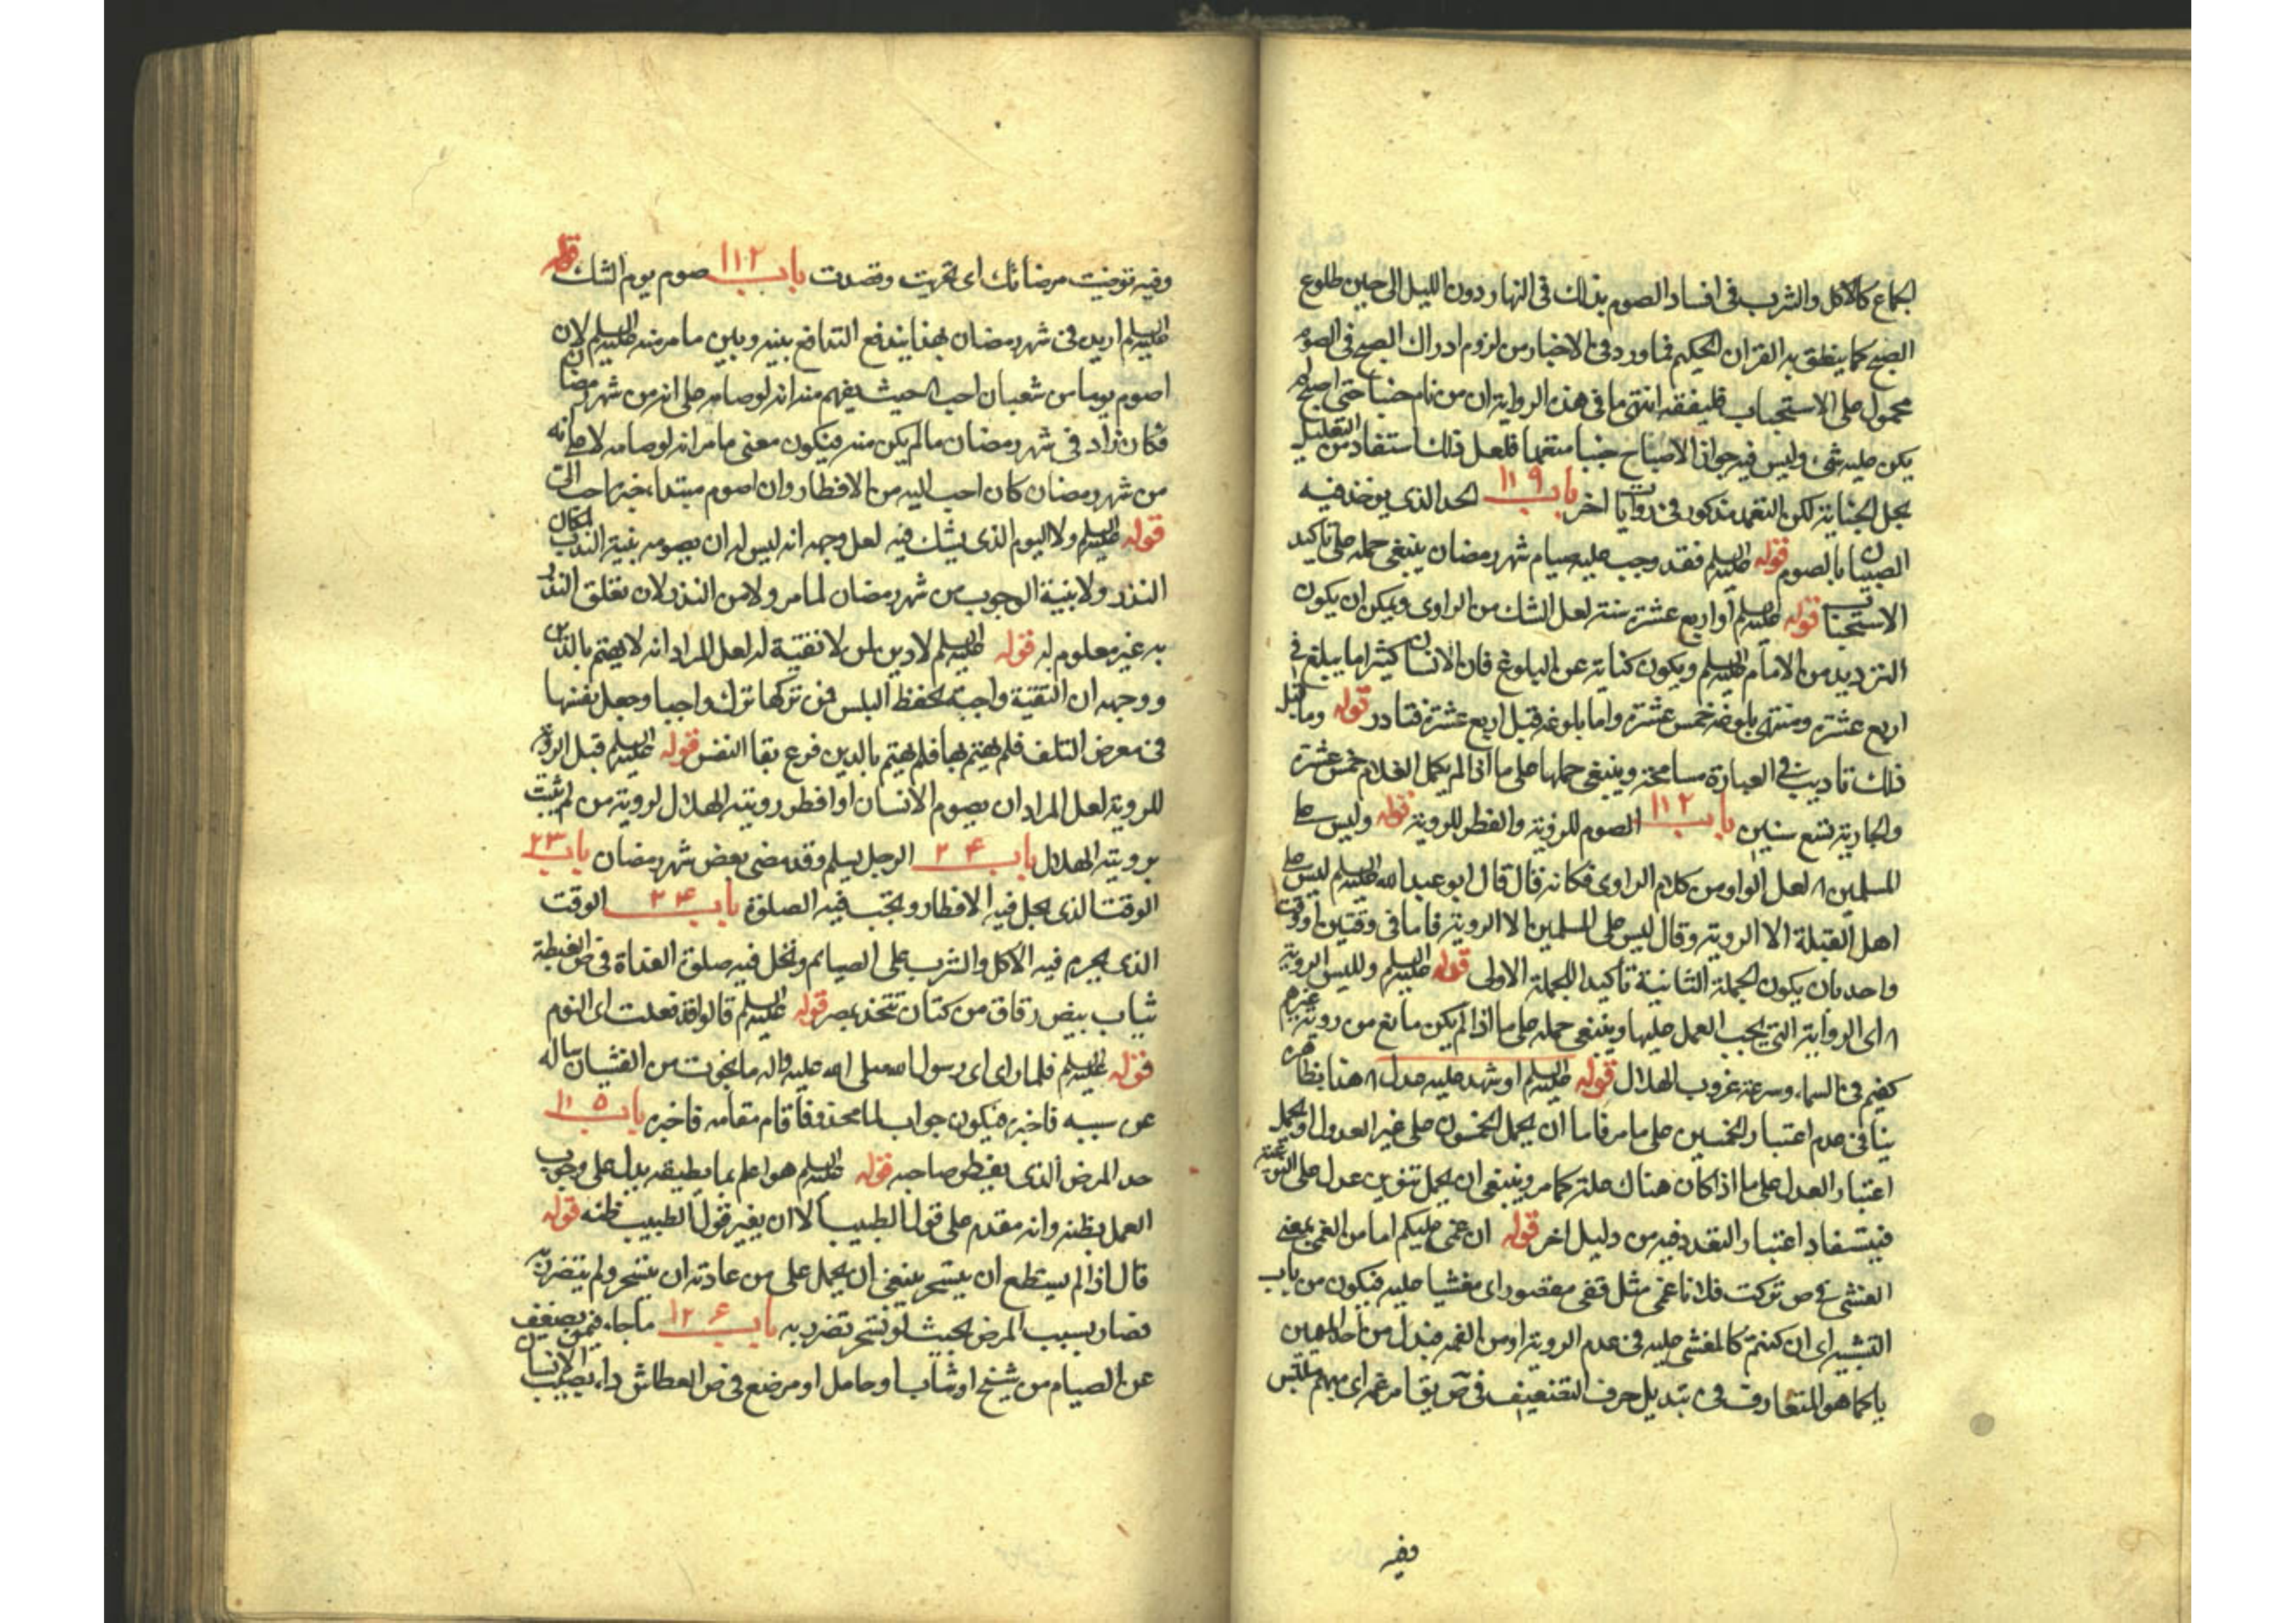 الجماع كالاكل والشرب فى افساد الصوم بذلك فى النهار دون الليل الى حين طلوع
الصبح كما ينطق به القران الحكيم فما ورد فى الاخبار من لزوم ادراك الصبح فى الصوم
محمول على الاستحباب فليفقه انتهى ما فى هذه الرواية ان من نام جنبا حتى اصبح لم
يكن عليه شئ وليس فيه جواز الاصباح جنبا متعمدا فلعل ذلك استفاد من التعليل
بحل الجنابة لكن التعمد مذكور فى روايات اخر باب ١١٩ الحد الذى يوخذ فيه
الصبيان بالصوم قوله عليه السلم فقد وجب عليه صيام شهر رمضان ينبغى حمله على تاكيد
الاستحباب قوله عليه السلم أو اربع عشرة سنة لعل الشك من الراوى ويمكن ان يكون
الترديد من الامام عليه السلم ويكون كناية عن البلوغ فان الانسان كثيرا ما يبلغ فى
اربع عشرة ومنتهى بلوغه خمس عشرة واما بلوغه قبل اربع عشرة فنادر قوله وما قبل
ذلك تاديب فى العبارة مسامحة وينبغى حملها على ما اذا لم يكمل الغلام خمس عشرة
والجارية تسع سنين باب ١١٢ الصوم للرؤية والفطر للروية قوله وليس على
المسلمين ٨ لعل الواو من كلام الراوى فكانه قال قال ابو عبد الله عليه السلم ليس على
اهل القبلة الا الروية وقال ليس على المسلمين الا الروية فاما فى وقتين او وقت
واحد بان يكون الجملة الثانية تأكيدا للجملة الاولى قوله عليه السلم وليس الروية
٨ اى الرواية التى يجب العمل عليها وينبغى حمله على ما اذا لم يكن مانع من روية غيرهم
كغيم فى السماء وسرعة غروب الهلال قوله عليه السلم او شهد عليه عدل ٨ هذا بظاهره
ينافى عدم اعتبار الخمسين على ما مر فاما ان يحمل الخمسون على غير العدول او يحمل
اعتبار العدل على ما اذا كان هناك علة كما مر وينبغى ان يحمل تنوين عدل على
فيستفاد اعتبار التعدد فيه من دليل اخر قوله ان غمى عليكم اما من الغمى بمعنى
الغشى فى ص تركت فلانا غمى مثل قفى مقصور اى مغشيا عليه فيكون من باب
التشبيه اى ان كنتم كالمغشى عليه فى عدم الروية او من الغمه فبدل من احد الميمين
ياء كما هو المتعارف فى تبديل حرف التضعيف فى ص يقا مر غمه اى مبهم ملتبس
وفيه
وفيه توخيت مرضاتك اى تحريت وقصدت باب ١١٢ صوم يوم الشك قوله
عليه السلم اريد فى شهر رمضان بهذا يندفع التدافع بينه وبين ما مر منه عليه السلم لان
اصوم يوما من شعبان احب الحيث يفهم منه انه لو صامه على انه من شهر رمضان
فكان زاد فى شهر رمضان ما لم يكن منه فيكون معنى ما مر انه لو صامه لا على انه
من شهر رمضان كان احب اليه من الافطار وان اصوم مبتداء خبره احب الى
قوله عليه السلم ولا اليوم الذى يشك فيه لعل وجهه انه ليس له ان يصومه بنية الندب لمكان
النذر ولا بنية الوجوب من شهر رمضان لما مر ولا من النذر لان تعلق النذر
به غير معلوم له قوله عليه السلم لا دين لمن لا تقية له لعل المراد انه لا يهتم بالدين
ووجهه ان التقية واجبة لحفظ النفس فمن تركها ترك واجبا وجعل نفسها
فى معرض التلف فلم يهتم بها فلم يهتم بالدين فرع بقاء النفس قوله عليه السلم قبل الروية
للروية لعل المراد ان يصوم الانسان او افطر روية الهلال لروية من لم يثبت
بروية الهلال باب ٢٤ الرجل يسلم وقد مضى بعض شهر رمضان باب ٢٣
الوقت الذى يحل فيه الافطار ويجب فيه الصلوة باب ٢٤ الوقت
الذى يحرم فيه الاكل والشرب على الصيام وتحل فيه صلوة الغداة فى ص القبطية
ثياب بيض رقاق من كتان تتخذ بمصر قوله عليه السلم قالوا قد فعلت اى النوم
قوله عليه السلم فلما راى اى رسول الله صلى الله عليه واله ما بخوت من الغشيان ساله
عن سببه فاخبره فيكون جواب لما محذوفا قام مقامه فاخبره باب ١١٥
حد المرض الذى يفطر صاحبه قوله عليه السلم هو اعلم بما يطيقه يدل على وجوب
العمل بظنه وانه مقدم على قول الطبيب الا ان يغير قول الطبيب ظنه قوله
قال اذا لم يستطع ان يتسحر ينبغى ان يحمل على من عادته ان يتسحر ولم يتضرر به
فصار بسبب المرض بحيث لو تسحر تضرر به باب ١٢٦ ما جاء فيمن يضعف
عن الصيام من شيخ او شاب او حامل او مرضع فى ص العطاش داء يصيب الانسان